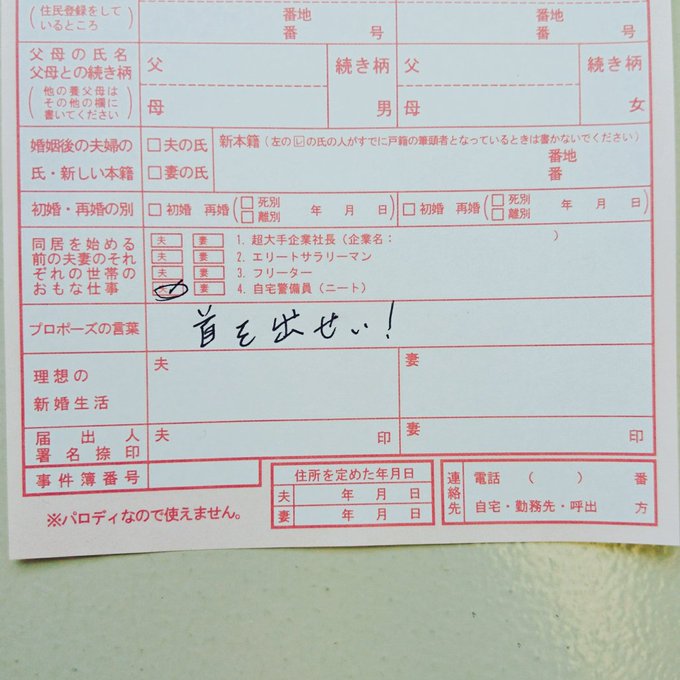 (住民登録をして
いるところ) 番地 番地
番 号 番 号
父母の氏名 父 続き柄 父 続き柄
父母との続き柄
(他の養父母は
その他の欄に
書いてください) 母 男 母 女
婚姻後の夫婦の □夫の氏 新本籍(左の☑の氏の人がすでに戸籍の筆頭者となっているときは書かないでください)
氏・新しい本籍 □妻の氏 番地
番
初婚・再婚の別 □初婚 再婚(□死別 □離別 年 月 日) □初婚 再婚(□死別 □離別 年 月 日)
同居を始める 夫 妻 1. 超大手企業社長(企業名: )
前の夫妻のそれ 夫 妻 2. エリートサラリーマン
ぞれの世帯の 夫 妻 3. フリーター
おもな仕事 夫 妻 4. 自宅警備員(ニート)
プロポーズの言葉 首を出せい!
理想の 夫 妻
新婚生活
届出人 夫 印 妻 印
署名捺印
事件簿番号
住所を定めた年月日
夫 年 月 日
妻 年 月 日
連絡先 電話 ( ) 番
自宅・勤務先・呼出 方
※パロディなので使えません。